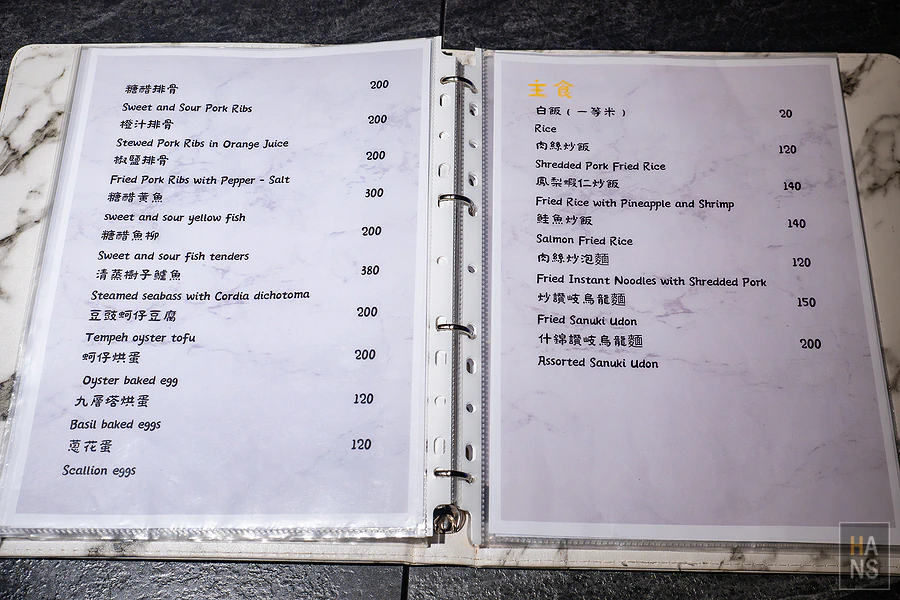 糖醋排骨 200
Sweet and Sour Pork Ribs
橙汁排骨 200
Stewed Pork Ribs in Orange Juice
椒鹽排骨 200
Fried Pork Ribs with Pepper - Salt
糖醋黃魚 300
sweet and sour yellow fish
糖醋魚柳 200
Sweet and sour fish tenders
清蒸樹子鱸魚 380
Steamed seabass with Cordia dichotoma
豆豉蚵仔豆腐 200
Tempeh oyster tofu
蚵仔烘蛋 200
Oyster baked egg
九層塔烘蛋 120
Basil baked eggs
蔥花蛋 120
Scallion eggs
主食
白飯（一等米） 20
Rice
肉絲炒飯 120
Shredded Pork Fried Rice
鳳梨蝦仁炒飯 140
Fried Rice with Pineapple and Shrimp
鮭魚炒飯 140
Salmon Fried Rice
肉絲炒泡麵 120
Fried Instant Noodles with Shredded Pork
炒讚岐烏龍麵 150
Fried Sanuki Udon
什錦讚岐烏龍麵 200
Assorted Sanuki Udon
HA
NS